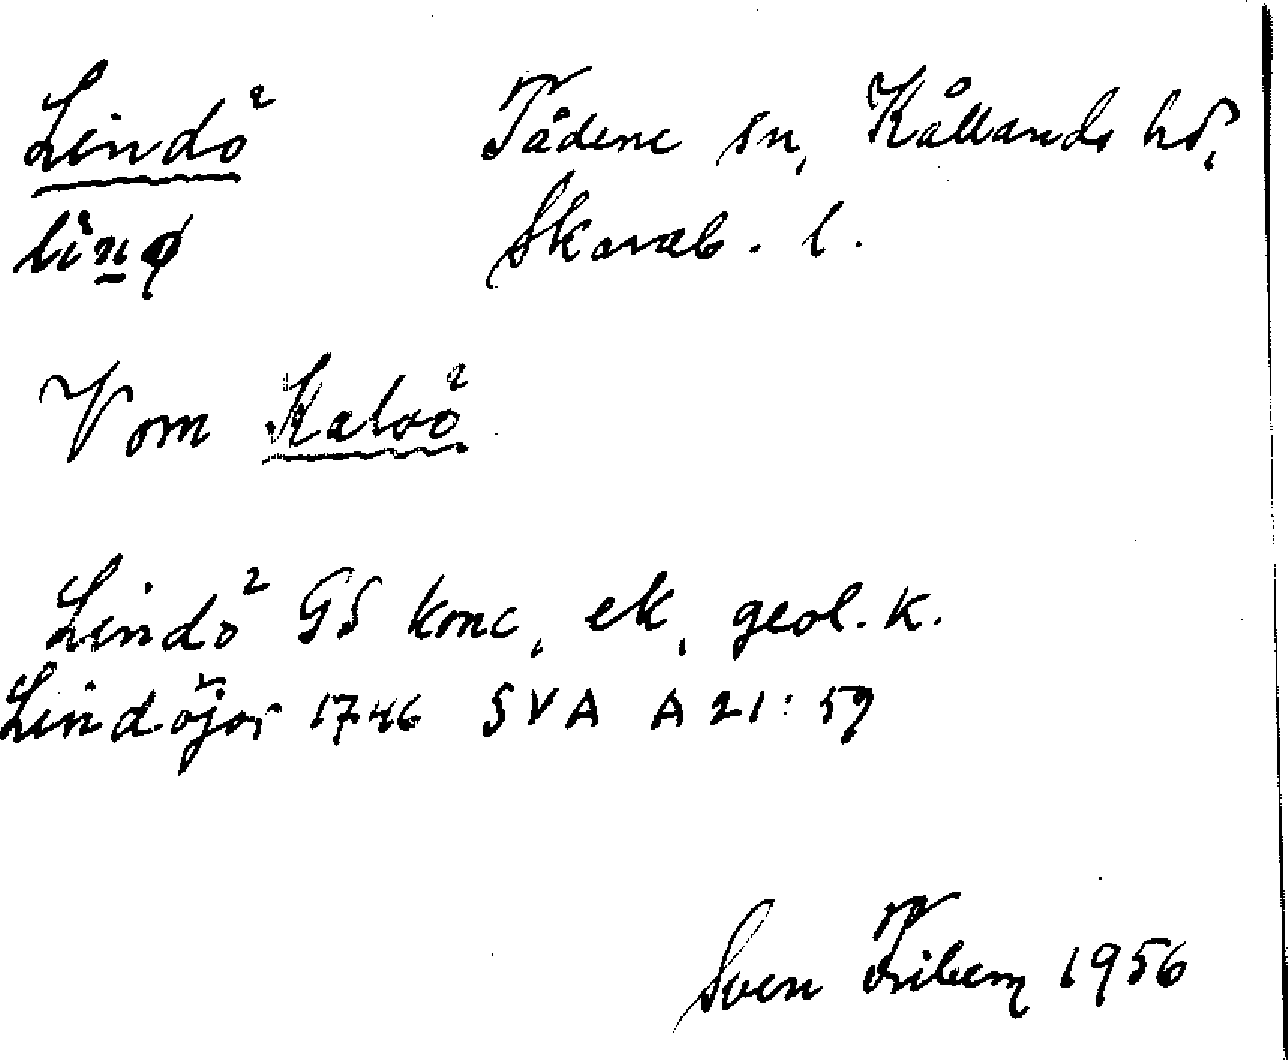 Lindö Tådene sn, Kållands hd,
linø Skarab. l.
Vom Kalvö
Lindö GS konc, ek, geol. k.
Lindöjor 1746 SVA A 21:59
Sven Friberg 1956